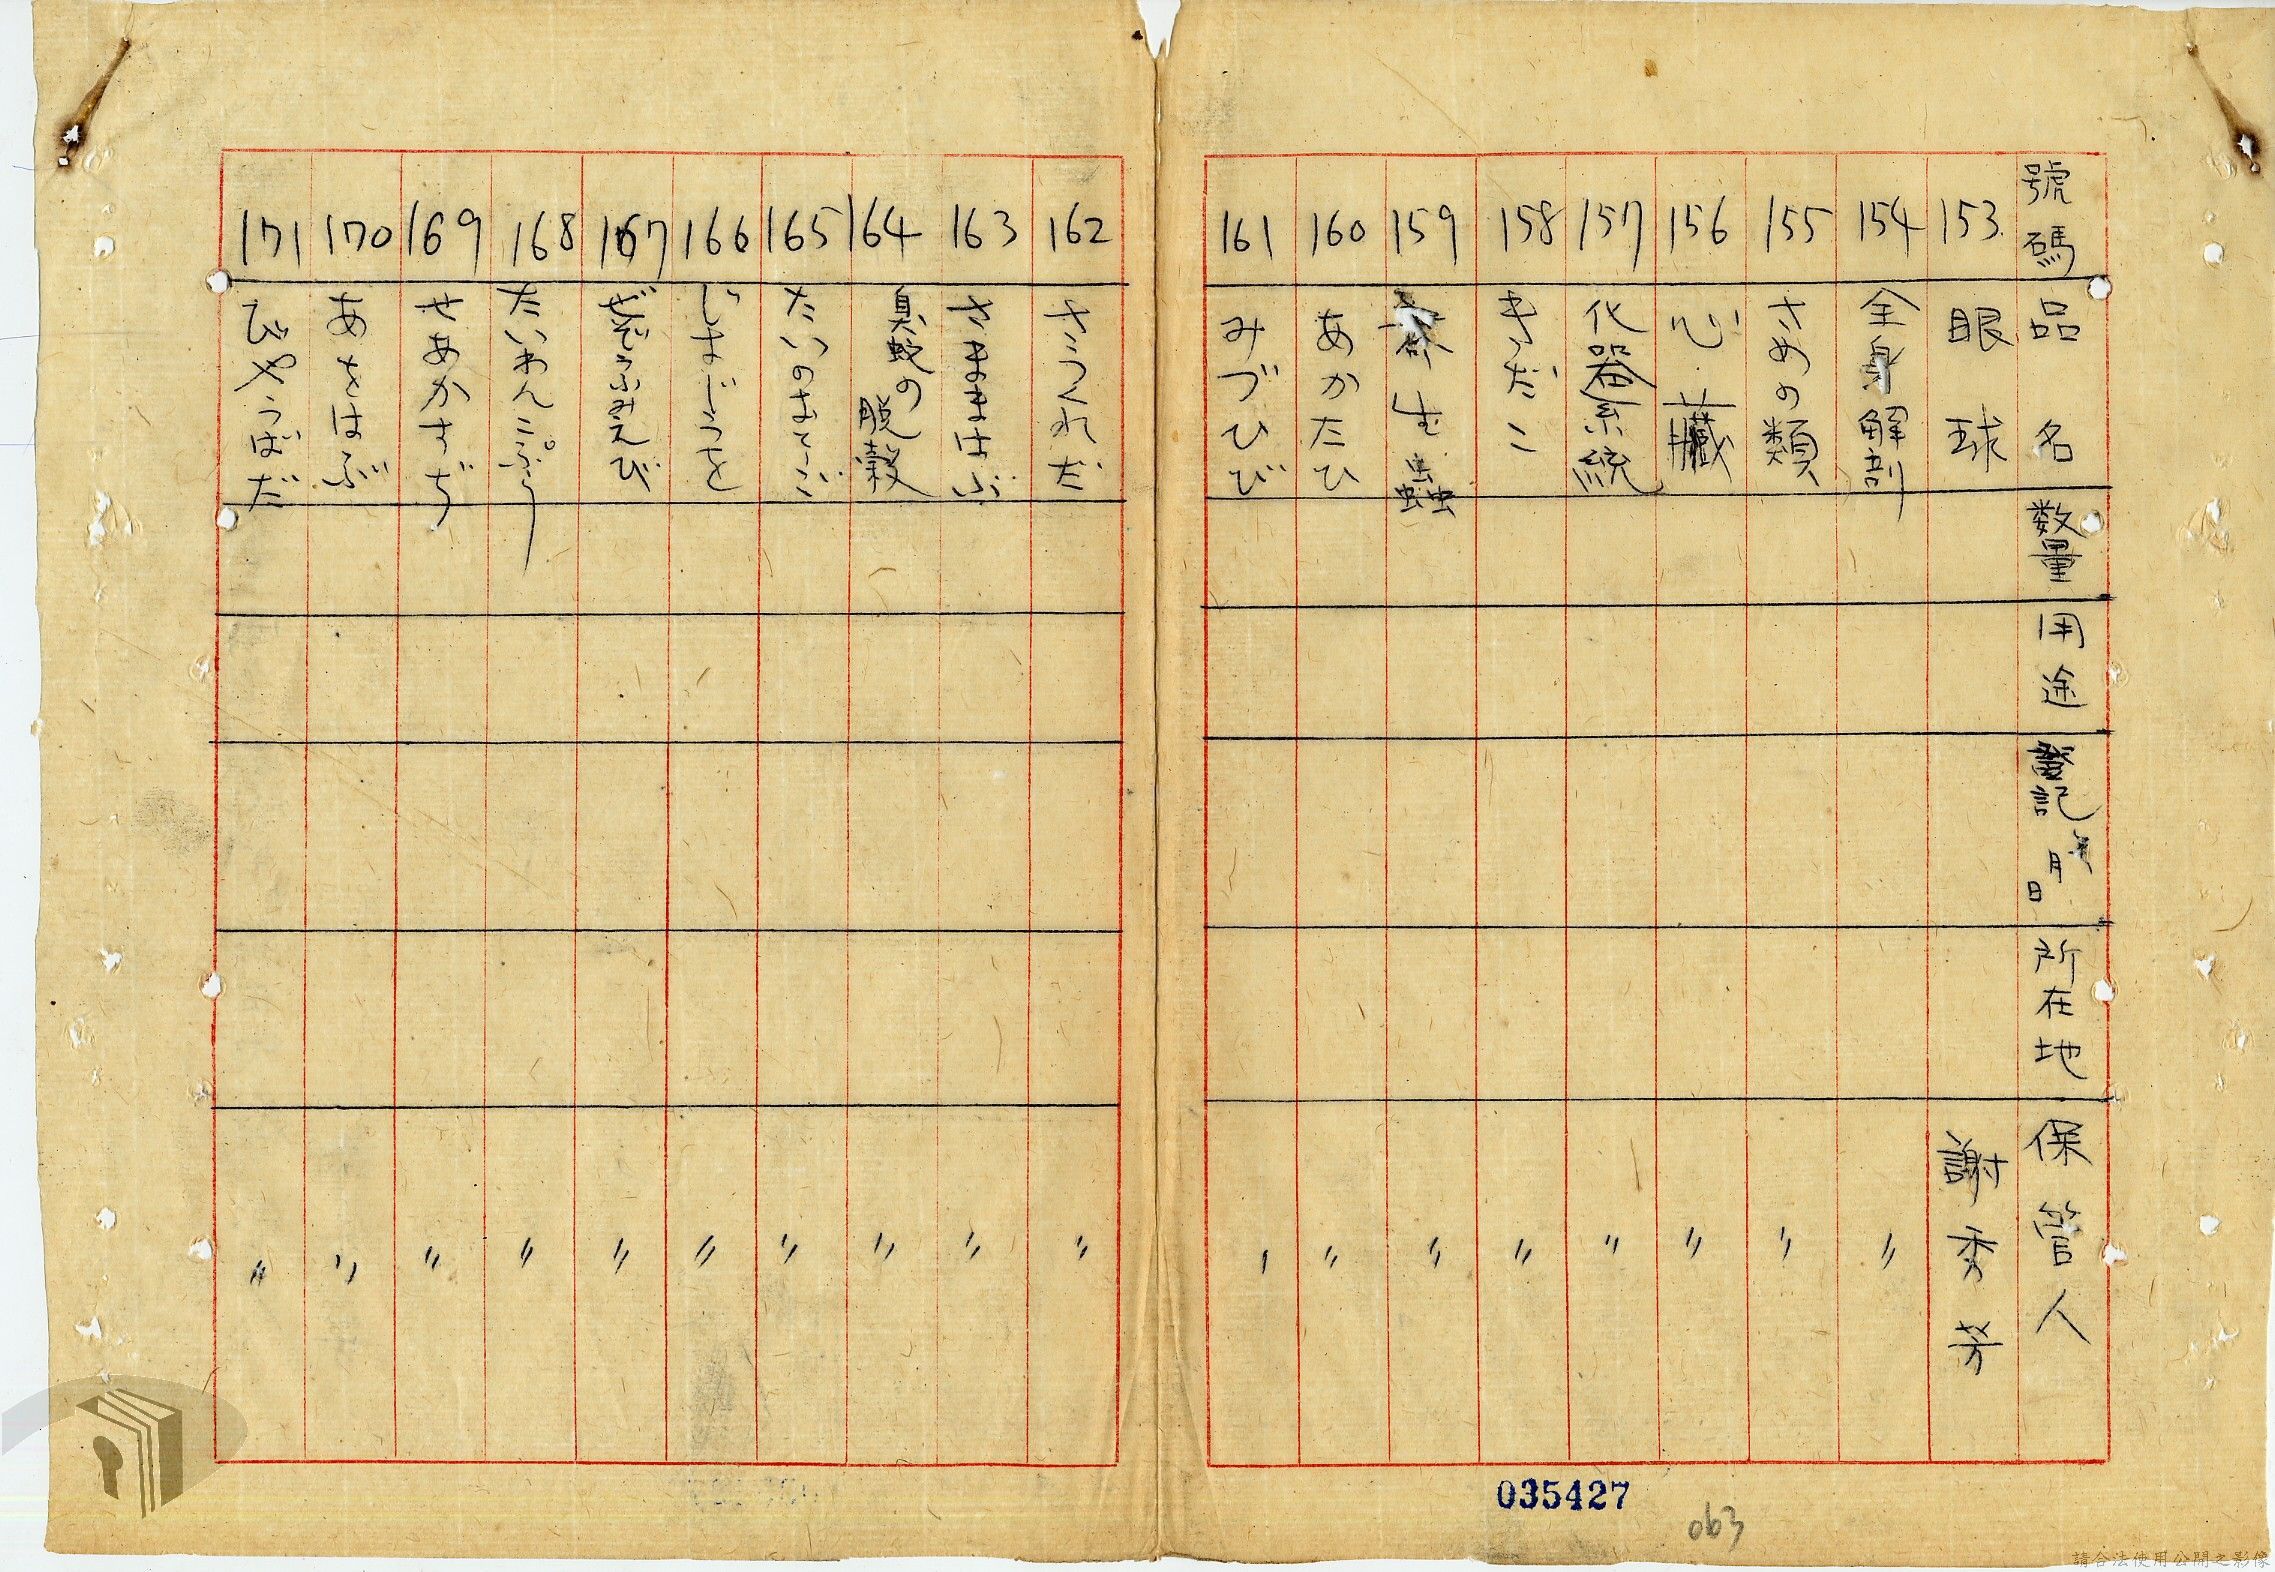 號碼 品名 数量 用途 登記年月日 所在地 保管人
153 眼球 謝秀芳
154 全身解剖 〃
155 さめの類 〃
156 心臓 〃
157 化器系統 〃
158 きだこ 〃
159 寄生蟲 〃
160 あかたひ 〃
161 みづひび 〃
162 さうくれだ 〃
163 さきまはぶ 〃
164 臭蛇の脱穀 〃
165 たいの 〃
166 〃
167 〃
168 たいわんこぶら 〃
169 せあかすぢ 〃
170 あをはぶ 〃
171 びやうばだ 〃
035427
063
請合法使用公開之影像